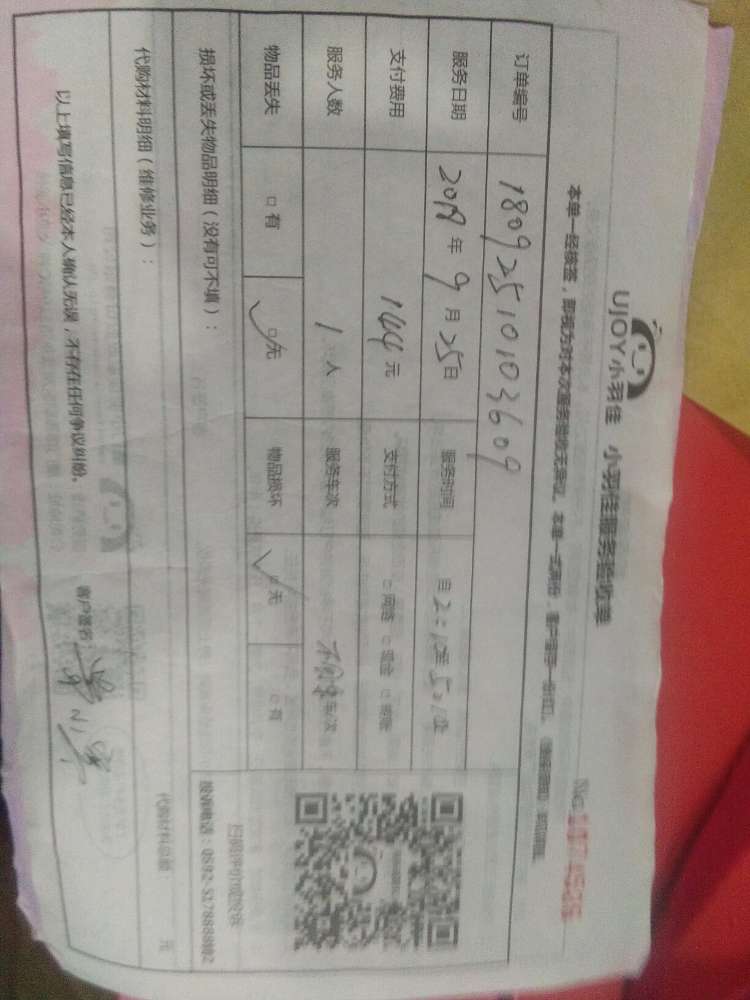 UJOY小羽佳 小羽佳服务验收单
本单一经核签，即视为对本次服务验收无异议。本单一式两份，客户留存一份
订单编号 18092510103609
服务日期 2018年9月25日 服务时间 自2:10至5:10
支付费用 144元 支付方式 □网络 □现金 □转账
服务人数 1人 服务车次 车/次
物品丢失 □有 □无 物品损坏 □无 □有
损坏或丢失物品明细（没有可不填）：
投诉电话：0592-5178888
代购材料明细（维修业务）：
代购材料总额 元
以上填写信息已经本人确认无误，不存在任何争议纠纷。 客户签名：